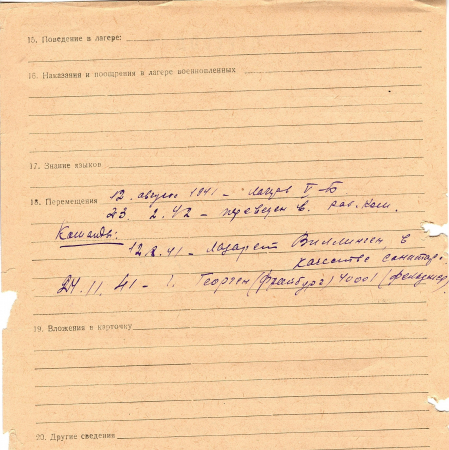 15. Поведение в лагере:
16. Наказания и поощрения в лагере военнопленных
17. Знание языков
18. Перемещения 12. август 1941 - Лагерь V-Б
23. 2.42 - переведен в. раб. ком.
Команды:
12.8.41 - Лазарет Виллинген в
качестве санитар.
24.11.41 - Георген (Фрайбург) 4000
19. Вложения в карточку
20. Другие сведения